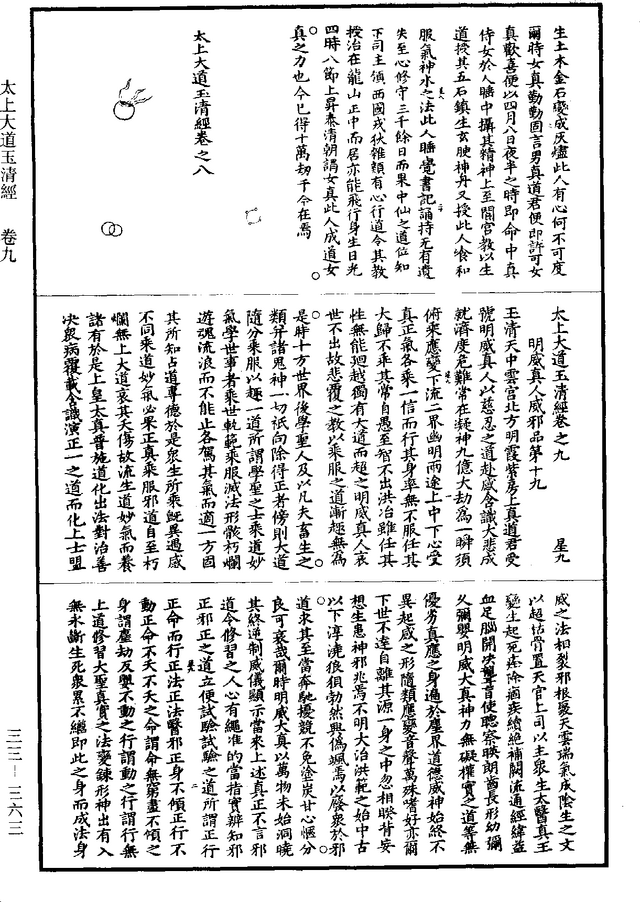 太上大道玉清經 卷九
三三—三六三
生土木金石變成灰燼此人有心何不可度
爾時女真勤勤固言男真道君便即許可女
真歡喜便以四月八日夜半之時即命中真
侍女於人睡中攝其精神上至闇宮教以生
道授其五石鎮生玄腴神丹又授此人飡和
服氣神水之法此人睡覺書記誦持无有遺
失至心修守三千餘日而果中仙之道位知
下司主領西國戎伏雜類有心行道令其教
授治在龍山正中而居亦能飛行身生日光
四時八節上昇泰清朝謁女真此人成道女
真之力也今已得十萬劫于今在焉
太上大道玉清經卷之八
太上大道玉清經卷之九 星九
明威真人威邪品第十九
玉清天中雲宮北方明霞紫房上真道君受
號明威真人以慈忍之道赴感含識大悲成
就濟度危難常在凝神九億大劫為一瞬須
俯來應變下流二界幽明兩途上中下心受
真正氣各乘一信而行其身率無不服任其
大歸不乖其常自愚至智不出洪冶雖任其
性無能迴越獨有大道而超之明威真人哀
世不出故悲覆之教以乘服之道漸趣無為
是時十方世界後學聖人及以凡夫畜生之
類并諸鬼神一切祇向除得正者傍則大道
隨分乘服以趣一道所謂學聖之士乘道妙
氣學世事者乘世軌範乘服滅法形骸朽爛
遊魂流浪而不能止各駕其氣而適一方固
其所知占道專德於是眾生所乘既異遇感
不同乘道妙氣必果正真乘服邪道自至朽
爛無上大道哀其夭傷故流生道妙氣而養
諸有於是上皇太真普施道化出法對治善
決眾病覆載含識演正一之道而化上士盟
威之法相裂邪根裂天雲瑞氣成陰生之文
以超枯骨置天官上司以主眾生太醫真王
變生起死瘧除痼疾續絕補闕流通經緯益
血足腦開決聾盲使聰察映朗酋長形幼彌
久彌嬰明威大真神力無礙權實之道等無
優劣真應之身過於塵界道德威神始終不
異起感之形隨類應變音聲萬殊嗜好亦爾
下世不達自離其源一身之中忽相睽背妄
想生患神邪兆焉不明大治洪範之始中古
以下淳澆狼狽勃然興偽颯焉以廢眾於邪
道求其至當奔馳擾競不免塗炭甘心慳分
良可哀哉爾時明威大真以萬物未始洞曉
其終逆制威儀顯示當來上述真正不言邪
道令修習之人心有繩准的當指實辯知邪
正邪正之道立便試驗試驗之道所謂正行
正命而行正法正法醫邪正身不傾正行不
動正命不夭不夭之命謂命無窮盡不傾之
身謂塵劫反嬰不動之行謂動之行謂行無
上道修習大聖真實之法變鍊形神出有入
無永斷生死眾累不繼即此之身而成法身